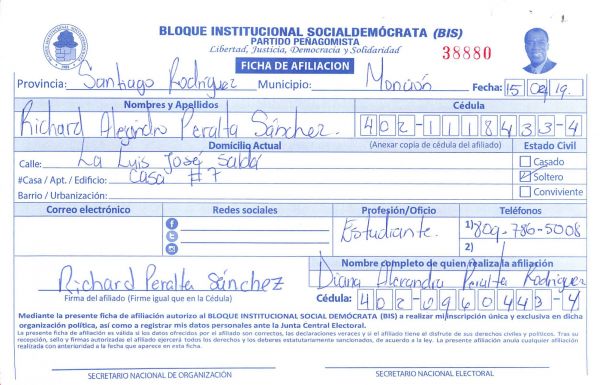 BLOQUE INSTITUCIONAL SOCIALDEMÓCRATA (BIS)
PARTIDO PEÑAGOMISTA
Libertad, Justicia, Democracia y Solidaridad
38880
FICHA DE AFILIACION
Provincia: Santiago Rodríguez Municipio: Monción Fecha: 15 02 19.
Nombres y Apellidos Cédula
Richard Alejandro Peralta Sánchez. 402-1118433-4
Domicilio Actual (Anexar copia de cédula del afiliado) Estado Civil
Calle: La Luis José
Casado
#Casa / Apt. / Edificio: Casa #7
Soltero
Barrio / Urbanización:
Conviviente
Correo electrónico Redes sociales Profesión/Oficio Teléfonos
Estudiante. 1) 809-786-5008
2)
Nombre completo de quien realiza la afiliación
Richard Peralta Sánchez Diana Alexandra Peralta Rodriguez
Firma del afiliado (Firme igual que en la Cédula) Cédula: 402-0960443-4
Mediante la presente ficha de afiliación autorizo al BLOQUE INSTITUCIONAL SOCIAL DEMÓCRATA (BIS) a realizar mi inscripción única y exclusiva en dicha
organización política, así como a registrar mis datos personales ante la Junta Central Electoral.
La presente ficha de afiliación es válida si los datos ofrecidos por el afiliado son correctos, las declaraciones veraces y si el afiliado tiene el disfrute de sus derechos civiles y políticos. Tras su
recepción, sello y firmas autorizadas el afiliado ejercerá todos los derechos y los deberes estatutariamente sancionados, de acuerdo a la ley. La presente afiliación anula cualquier afiliación
realizada con anterioridad a la fecha que aparece en esta ficha.
SECRETARIO NACIONAL DE ORGANIZACIÓN SECRETARIO NACIONAL ELECTORAL